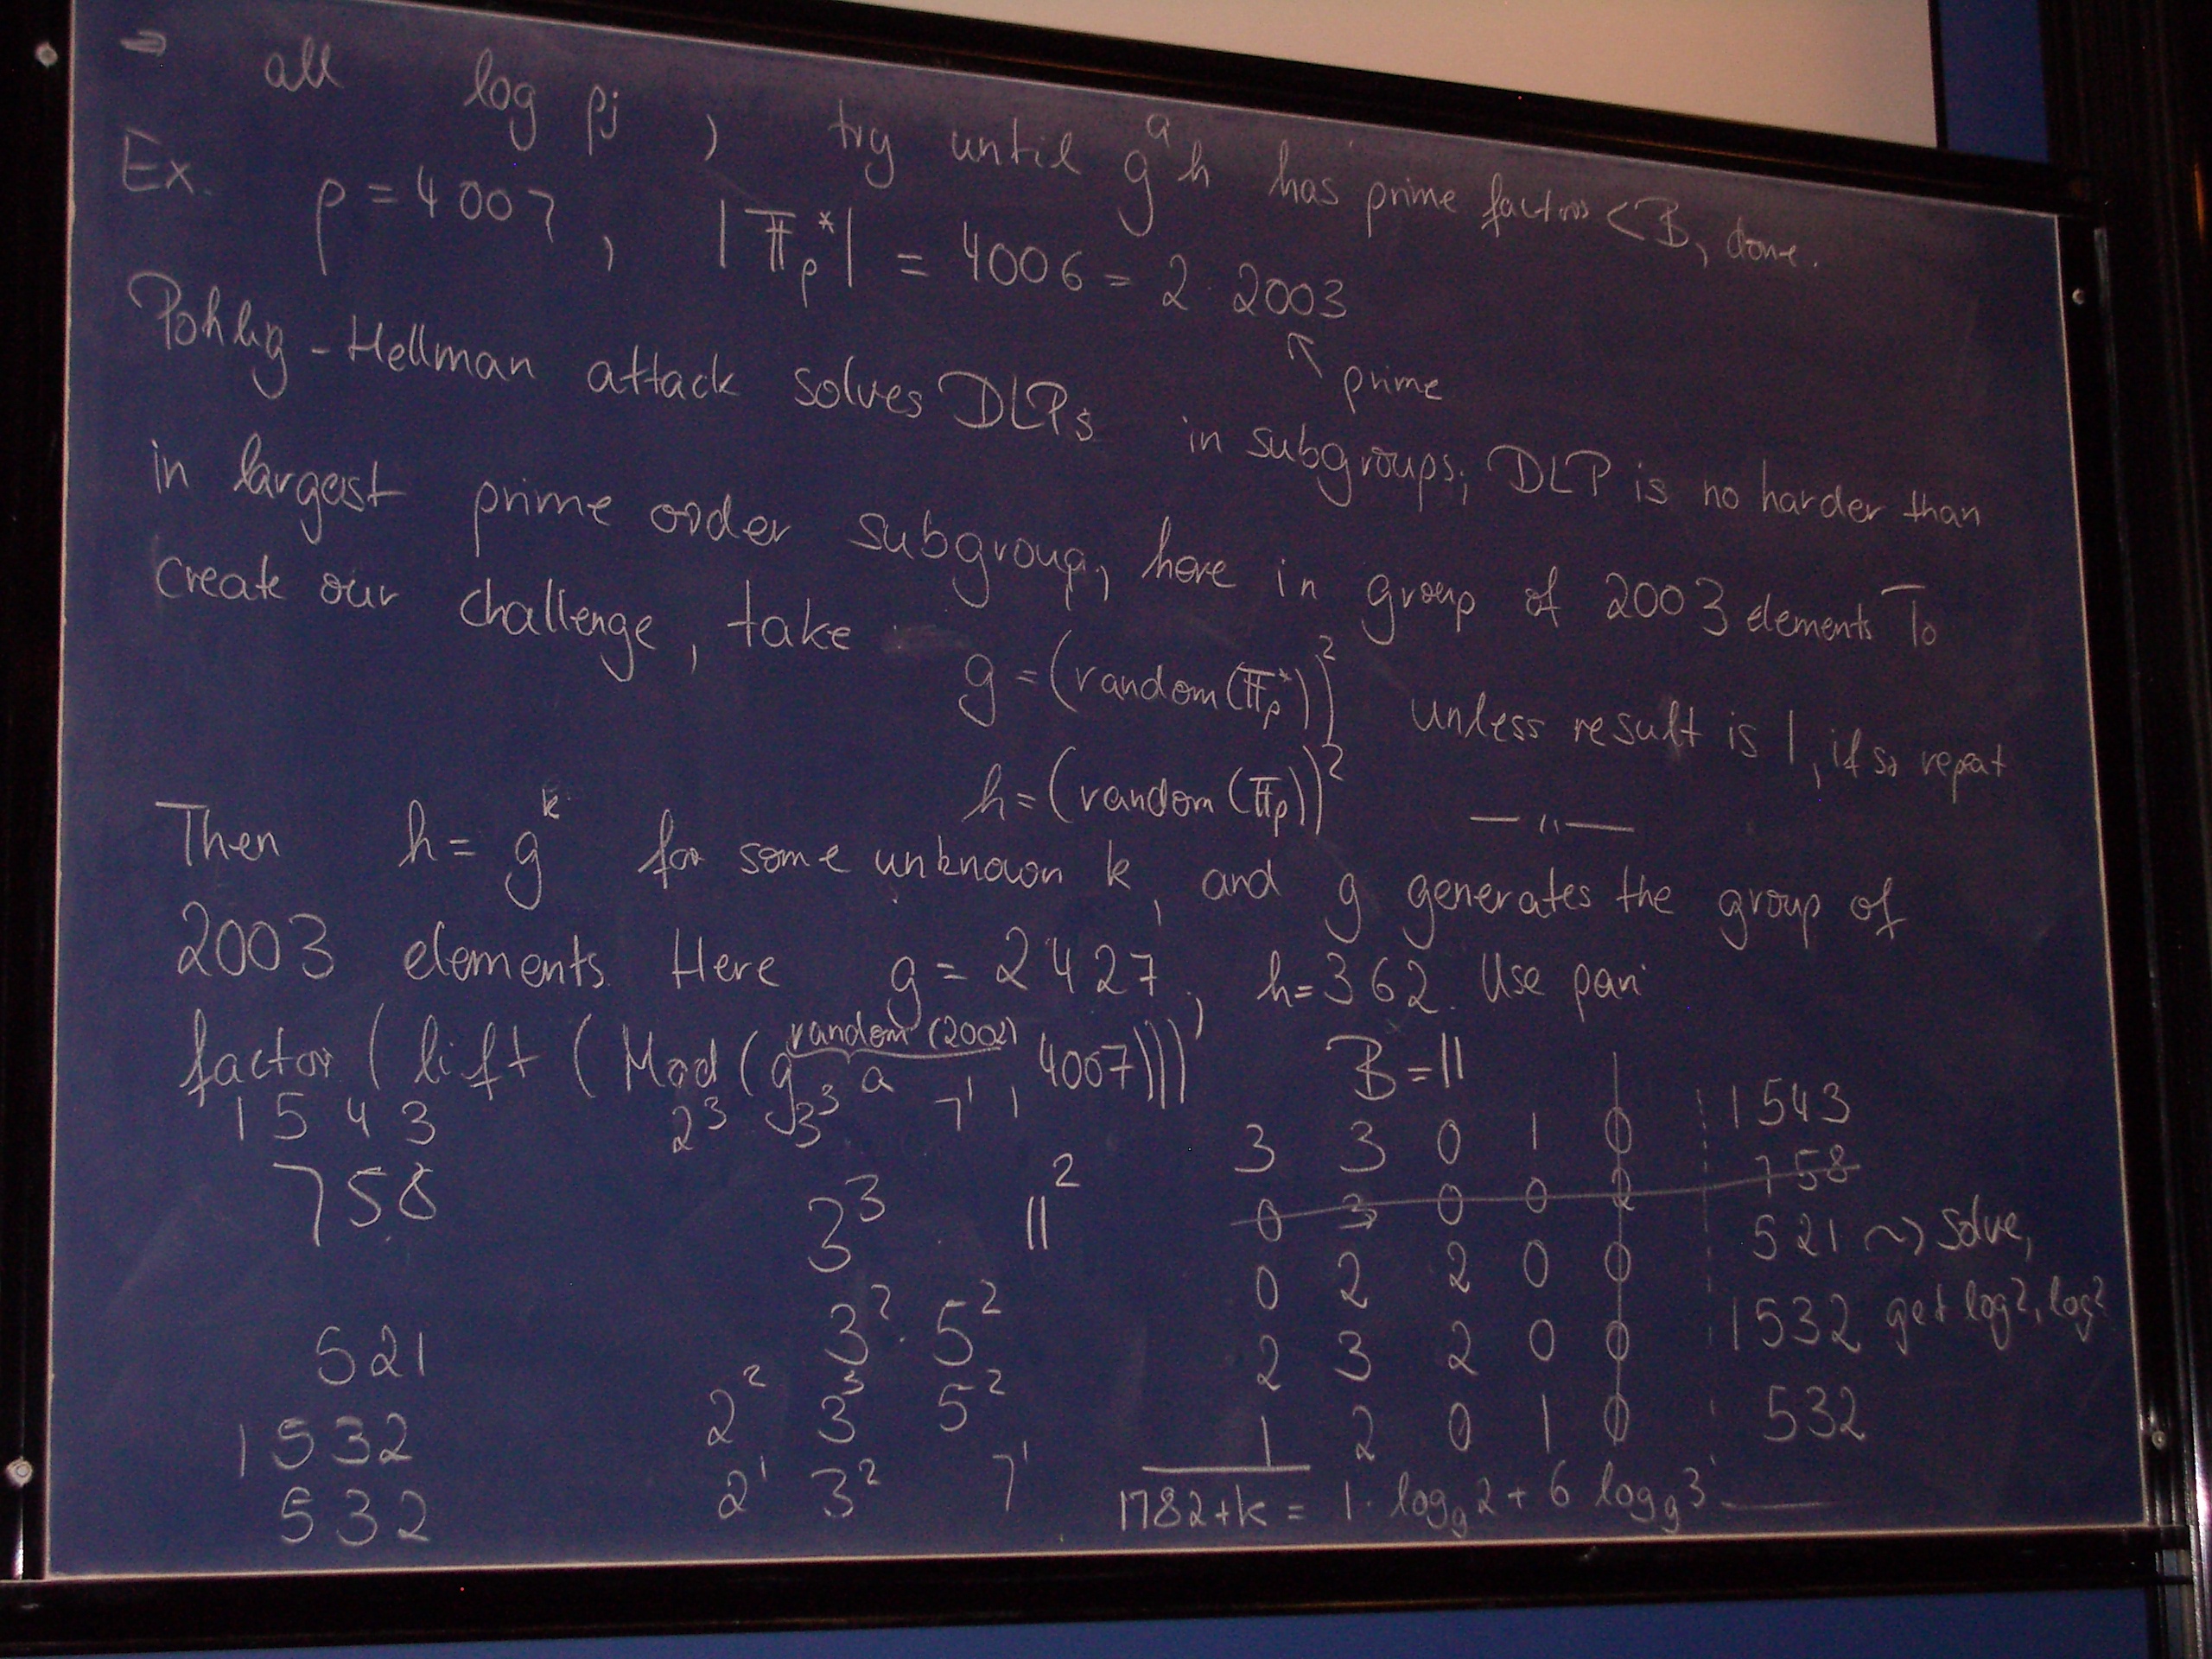 ⇒ all log pj, try until g^a h has prime factors < B, done.
Ex. p = 4007, |𝔽p*| = 4006 = 2 · 2003
↖ prime
Pohlig-Hellman attack solves DLPs in subgroups; DLP is no harder than
in largest prime order subgroup, here in group of 2003 elements To
create our challenge, take
g = (random(𝔽p*))² unless result is 1, if so repeat
h = (random(𝔽p))² — " —
Then h = g^k for some unknown k, and g generates the group of
2003 elements. Here g = 2427, h = 362. Use pari
factor(lift(Mod(g^random(2002), 4007))) B = 11
a
1543 2³ 3³ 7¹ 3 3 0 1 0 1543
758 3³ 11² 0 3 0 0 2 758
521 3² · 5² 0 2 2 0 0 521 ⇝ solve,
1532 2² 3³ 5² 2 3 2 0 0 1532 get log 2, log
532 2¹ 3² 7¹ 1 2 0 1 0 532
1782+k = 1 · log_g 2 + 6 log_g 3